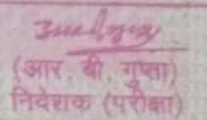 (आर. बी. गुप्ता)
निदेशक (परीक्षा)